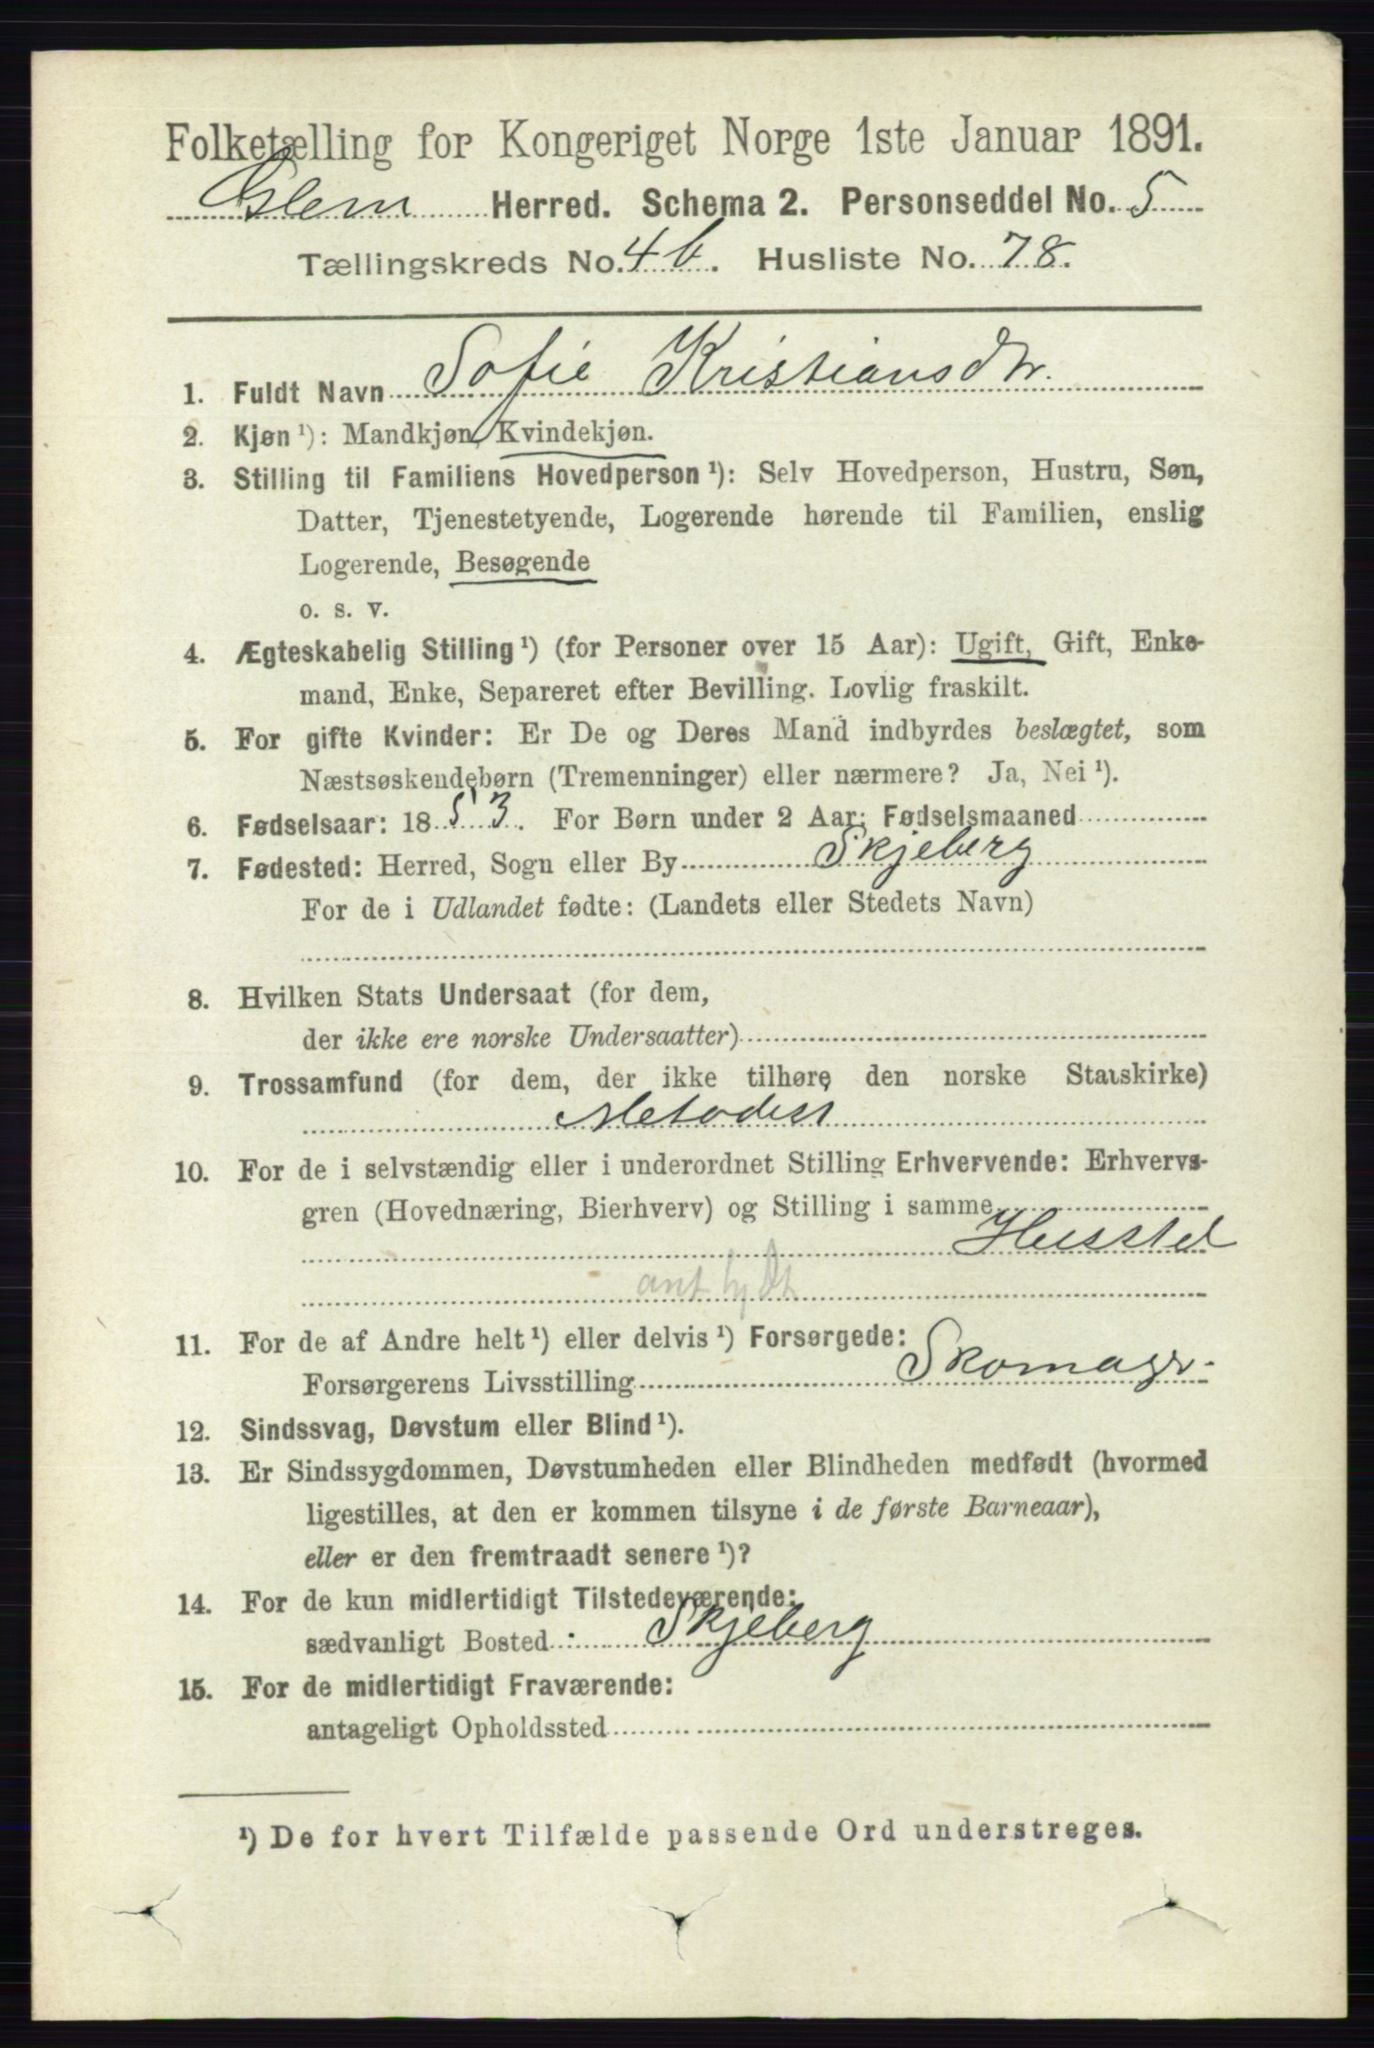 Folketælling for Kongeriget Norge 1ste Januar 1891.
Glem Herred. Schema 2. Personseddel No. 5
Tællingskreds No. 4b. Husliste No. 78.
1. Fuldt Navn Sofie Kristiansdtr.
2. Kjøn ¹): Mandkjøn, Kvindekjøn.
3. Stilling til Familiens Hovedperson ¹): Selv Hovedperson, Hustru, Søn,
Datter, Tjenestetyende, Logerende hørende til Familien, enslig
Logerende, Besøgende
o. s. v.
4. Ægteskabelig Stilling ¹) (for Personer over 15 Aar): Ugift, Gift, Enke-
mand, Enke, Separeret efter Bevilling. Lovlig fraskilt.
5. For gifte Kvinder: Er De og Deres Mand indbyrdes beslægtet, som
Næstsøskendebørn (Tremenninger) eller nærmere? Ja, Nei ¹).
6. Fødselsaar: 1853. For Børn under 2 Aar: Fødselsmaaned
7. Fødested: Herred, Sogn eller By Skjeberg
For de i Udlandet fødte: (Landets eller Stedets Navn)
8. Hvilken Stats Undersaat (for dem,
der ikke ere norske Undersaatter)
9. Trossamfund (for dem, der ikke tilhøre den norske Statskirke)
Metodist
10. For de i selvstændig eller i underordnet Stilling Erhvervende: Erhvervs-
gren (Hovednæring, Bierhverv) og Stilling i samme
Husstel
11. For de af Andre helt ¹) eller delvis ¹) Forsørgede:
Forsørgerens Livsstilling Skomagr.
12. Sindssvag, Døvstum eller Blind ¹).
13. Er Sindssygdommen, Døvstumheden eller Blindheden medfødt (hvormed
ligestilles, at den er kommen tilsyne i de første Barneaar),
eller er den fremtraadt senere ¹)?
14. For de kun midlertidigt Tilstedeværende:
sædvanligt Bosted: Skjeberg
15. For de midlertidigt Fraværende:
antageligt Opholdssted
¹) De for hvert Tilfælde passende Ord understreges.